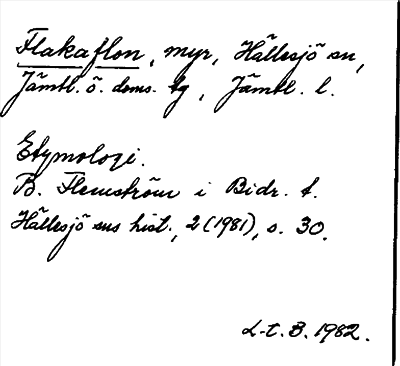 Flakaflon, myr, Hällesjö sn,
Jämtl. ö. doms. tg, Jämtl. l.
Etymologi.
B. Flemström i Bidr. t.
Hällesjö sns hist., 2 (1981), s. 30.
L-t. B. 1982.